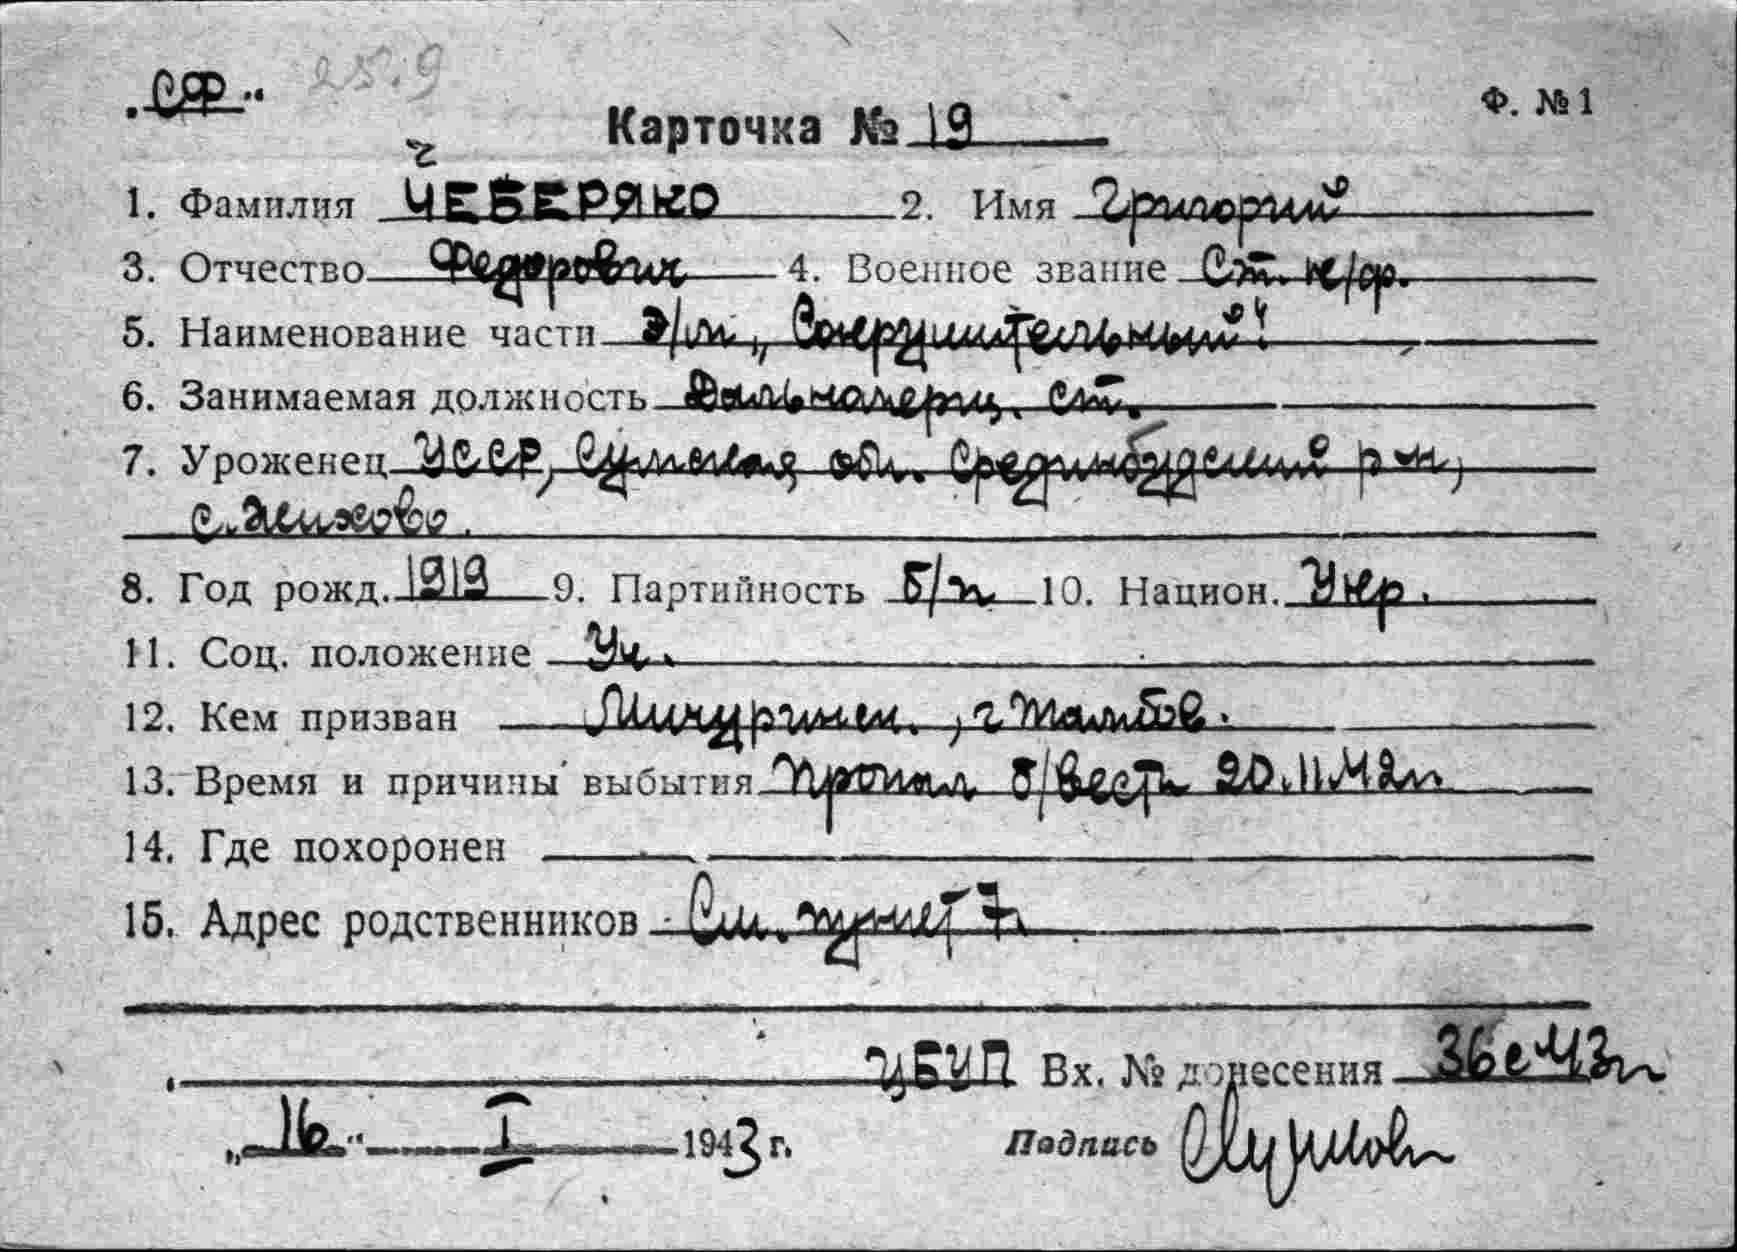 „СФ“ 25.9
Ф. №1
Карточка № 19
ч
1. Фамилия ЧЕБЕРЯКО 2. Имя Григорий
3. Отчество Федорович 4. Военное звание Ст. к/ф.
5. Наименование части Э/м „Сокрушительный“
6. Занимаемая должность Дальномерщ. ст.
7. Уроженец УССР, Сумская обл. Срединбудский р-н,
с. Жихово.
8. Год рожд. 1919 9. Партийность б/п 10. Национ. Укр.
11. Соц. положение Уч.
12. Кем призван Мичуринск., г Тамбов.
13. Время и причины выбытия Пропал б/вести 20.11.42г.
14. Где похоронен
15. Адрес родственников См. пункт 7
ЦБУП Вх. № донесения 36с 43г
„16“ I 1943 г. Подпись